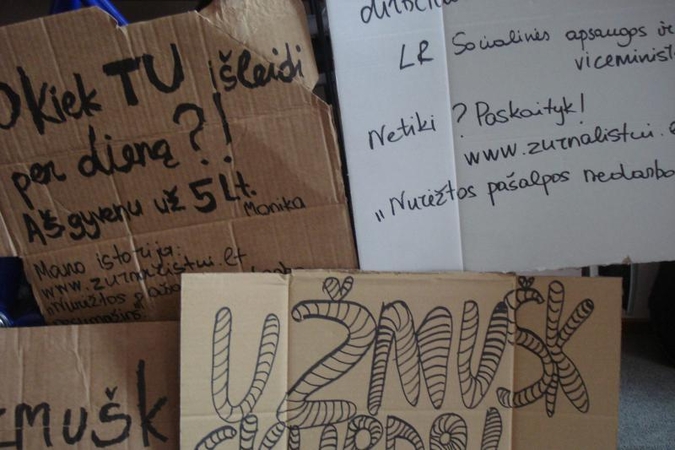 Okiek TU išleidi
per dieną?!
Aš gyvenu už 5 Lt.
Monika
Mano istorija:
www.zurnalistui.lt
"Nurėžtos
LR Socialinės apsaugos ir
viceminist
Netiki? Paskaityk!
www.zurnalistui.
"Nurėžtos pašalpos nedarbo
UŽMUŠK
mušk